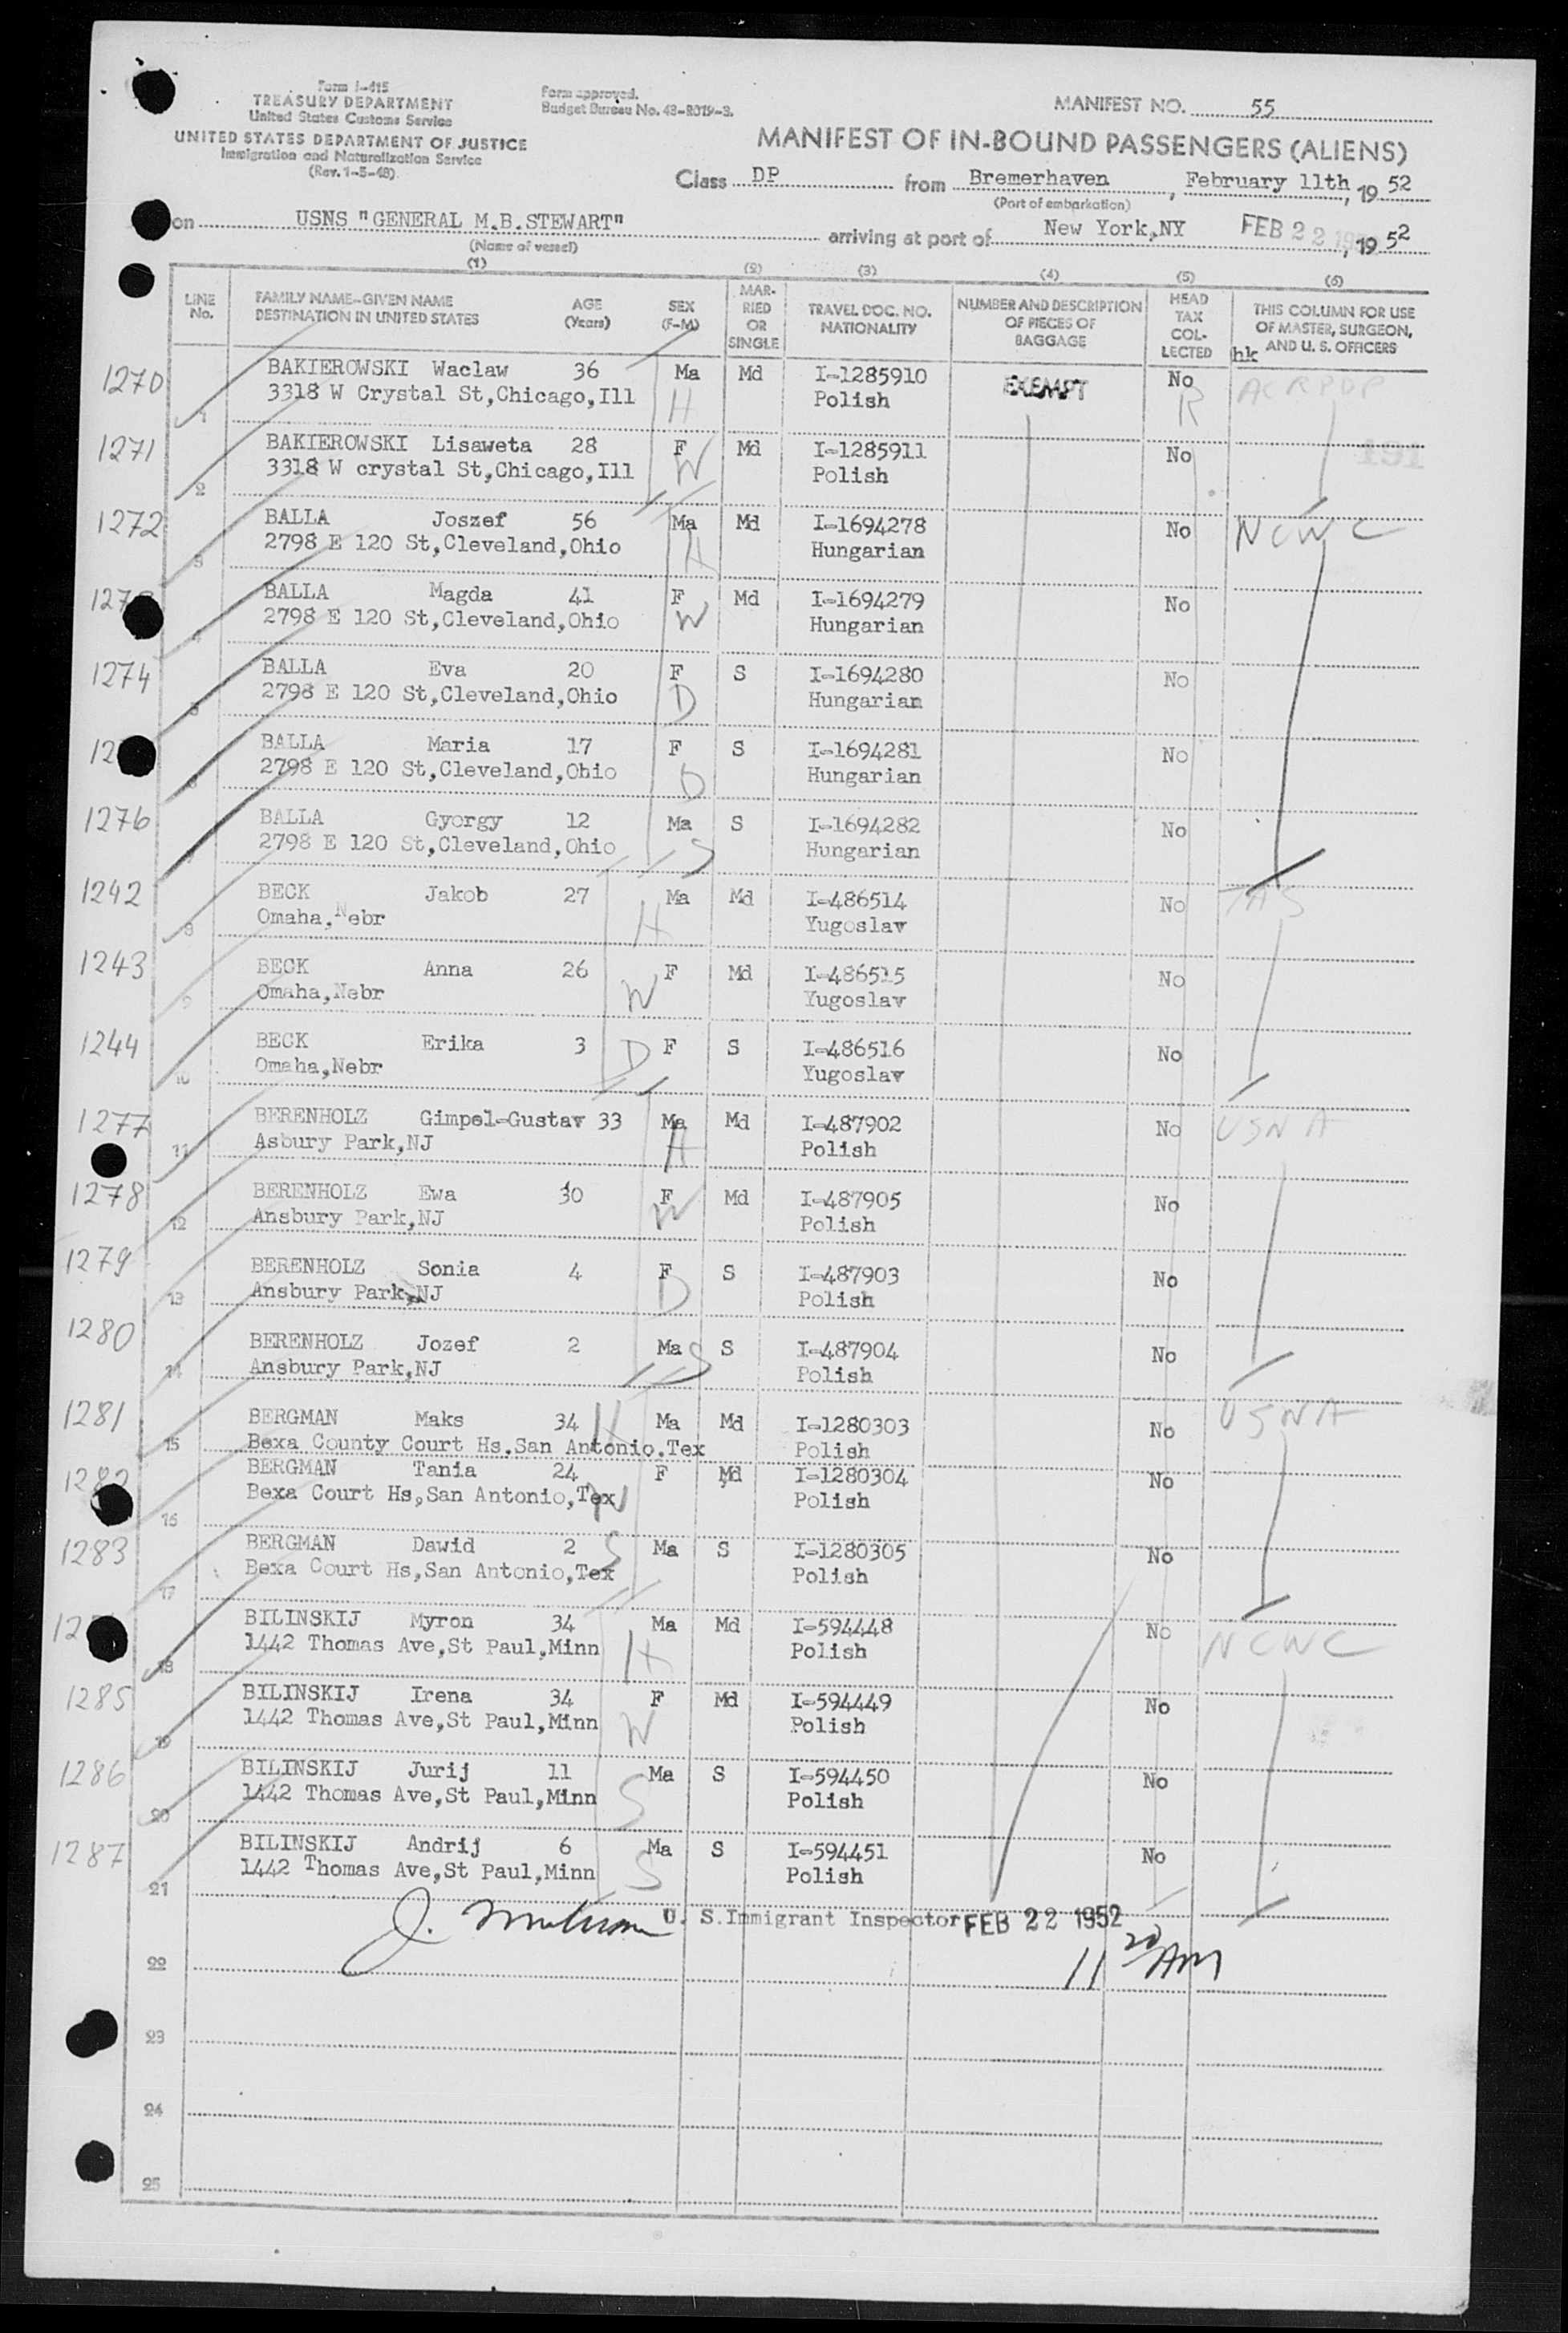 Form I-415
TREASURY DEPARTMENT
United States Customs Service
UNITED STATES DEPARTMENT OF JUSTICE
Immigration and Naturalization Service
(Rev. 1-5-48)
Form approved.
Budget Bureau No. 43-R019-3.
MANIFEST NO. 55
MANIFEST OF IN-BOUND PASSENGERS (ALIENS)
Class DP from Bremerhaven, February 11th, 1952
(Port of embarkation)
on USNS "GENERAL M.B.STEWART" arriving at port of New York,NY FEB 22, 1952
(Name of vessel)
(1) (2) (3) (4) (5) (6)
LINE No. FAMILY NAME-GIVEN NAME DESTINATION IN UNITED STATES AGE (Years) SEX (F-M) MARRIED OR SINGLE TRAVEL DOC. NO. NATIONALITY NUMBER AND DESCRIPTION OF PIECES OF BAGGAGE HEAD TAX COLLECTED THIS COLUMN FOR USE OF MASTER, SURGEON, AND U. S. OFFICERS
hk
1270 1 BAKIEROWSKI Waclaw 36 Ma Md I-1285910 EXEMPT No ACRPDP
3318 W Crystal St,Chicago,Ill H Polish R
1271 BAKIEROWSKI Lisaweta 28 F Md I-1285911 No 191
2 3318 W crystal St,Chicago,Ill W Polish
1272 BALLA Joszef 56 Ma Md I-1694278 No NCWC
3 2798 E 120 St,Cleveland,Ohio H Hungarian
BALLA Magda 41 F Md I-1694279 No
4 2798 E 120 St,Cleveland,Ohio W Hungarian
1274 BALLA Eva 20 F S I-1694280 No
5 2798 E 120 St,Cleveland,Ohio D Hungarian
BALLA Maria 17 F S I-1694281 No
6 2798 E 120 St,Cleveland,Ohio D Hungarian
1276 BALLA Gyorgy 12 Ma S I-1694282 No
7 2798 E 120 St,Cleveland,Ohio S Hungarian
1242 BECK Jakob 27 Ma Md I-486514 No
8 Omaha,Nebr H Yugoslav
1243 BECK Anna 26 F Md I-486515 No
9 Omaha,Nebr W Yugoslav
1244 BECK Erika 3 D F S I-486516 No
10 Omaha,Nebr Yugoslav
1277 BERENHOLZ Gimpel-Gustav 33 Ma Md I-487902 No USNA
11 Asbury Park,NJ H Polish
1278 BERENHOLZ Ewa 30 F Md I-487905 No
12 Ansbury Park,NJ W Polish
1279 BERENHOLZ Sonia 4 F S I-487903 No
13 Ansbury Park,NJ D Polish
1280 BERENHOLZ Jozef 2 Ma S I-487904 No
14 Ansbury Park,NJ S Polish
1281 BERGMAN Maks 34 H Ma Md I-1280303 No USNA
15 Bexa County Court Hs.San Antonio.Tex Polish
1282 BERGMAN Tania 24 F Md I-1280304 No
16 Bexa Court Hs,San Antonio,Tex W Polish
1283 BERGMAN Dawid 2 S Ma S I-1280305 No
17 Bexa Court Hs,San Antonio,Tex Polish
BILINSKIJ Myron 34 Ma Md I-594448 No NCWC
18 1442 Thomas Ave,St Paul,Minn H Polish
1285 BILINSKIJ Irena 34 F Md I-594449 No
19 1442 Thomas Ave,St Paul,Minn W Polish
1286 BILINSKIJ Jurij 11 Ma S I-594450 No
20 1442 Thomas Ave,St Paul,Minn S Polish
1287 BILINSKIJ Andrij 6 Ma S I-594451 No
21 1442 Thomas Ave,St Paul,Minn S Polish
J. U. S.Immigrant Inspector FEB 22 1952
22 11 20 AM
23
24
25